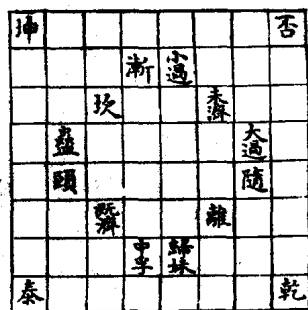 坤 否
漸 小過
坎 未濟
蠱 大過
頤 隨
既濟 離
中孚 歸妹
泰 乾